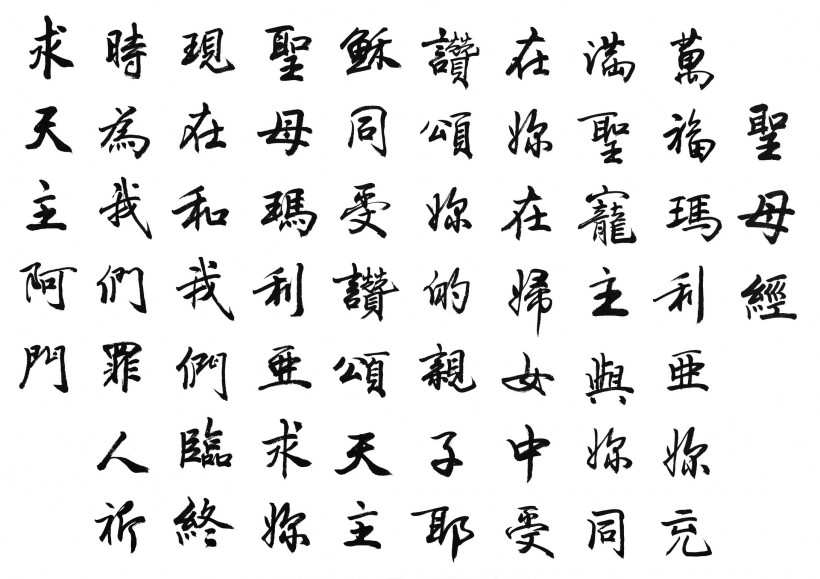 聖母經
萬福瑪利亞妳充
滿聖寵主與妳同
在妳在婦女中受
讚頌妳的親子耶
穌同受讚頌天主
聖母瑪利亞求妳
現在和我們臨終
時為我們罪人祈
求天主阿門